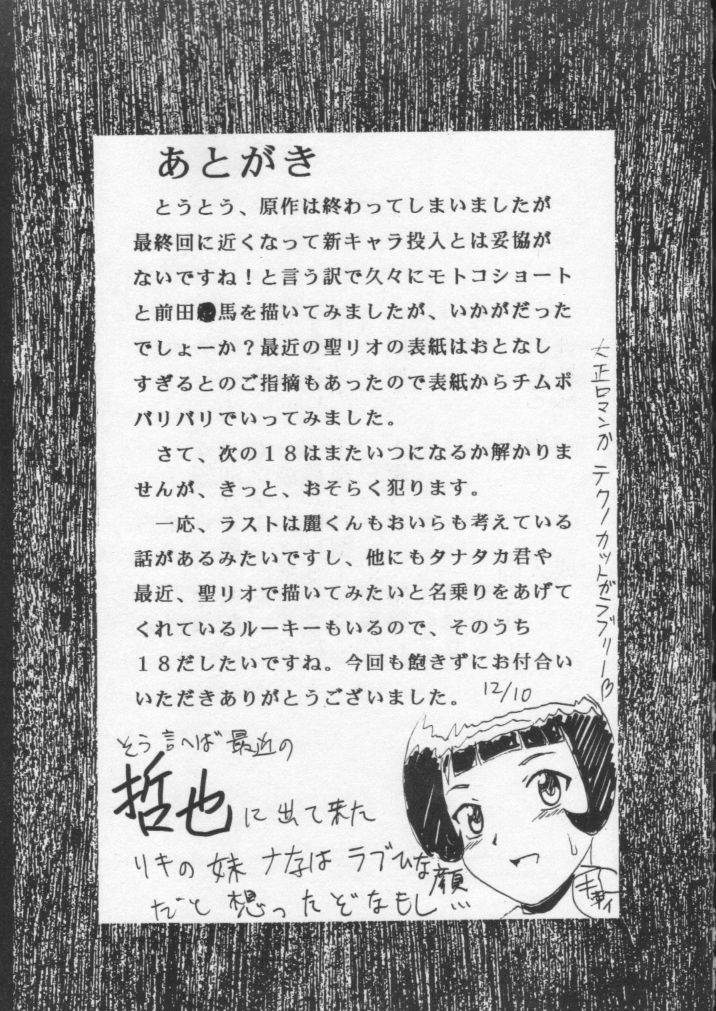 あとがき
とうとう、原作は終わってしまいましたが
最終回に近くなって新キャラ投入とは妥協が
ないですね！と言う訳で久々にモトコショート
と前田 馬を描いてみましたが、いかがだった
でしょーか？最近の聖リオの表紙はおとなし
すぎるとのご指摘もあったので表紙からチムポ
バリバリでいってみました。
さて、次の１８はまたいつになるか解かりま
せんが、きっと、おそらく犯ります。
一応、ラストは麗くんもおいらも考えている
話があるみたいですし、他にもタナタカ君や
最近、聖リオで描いてみたいと名乗りをあげて
くれているルーキーもいるので、そのうち
１８だしたいですね。今回も飽きずにお付合い
いただきありがとうございました。
12/10
大正ロマンか テクノカットがラブリー♡
そう言へば最近の
哲也に出て来た
リキの妹ナなはラブひな顔
だと想ったぞなもし